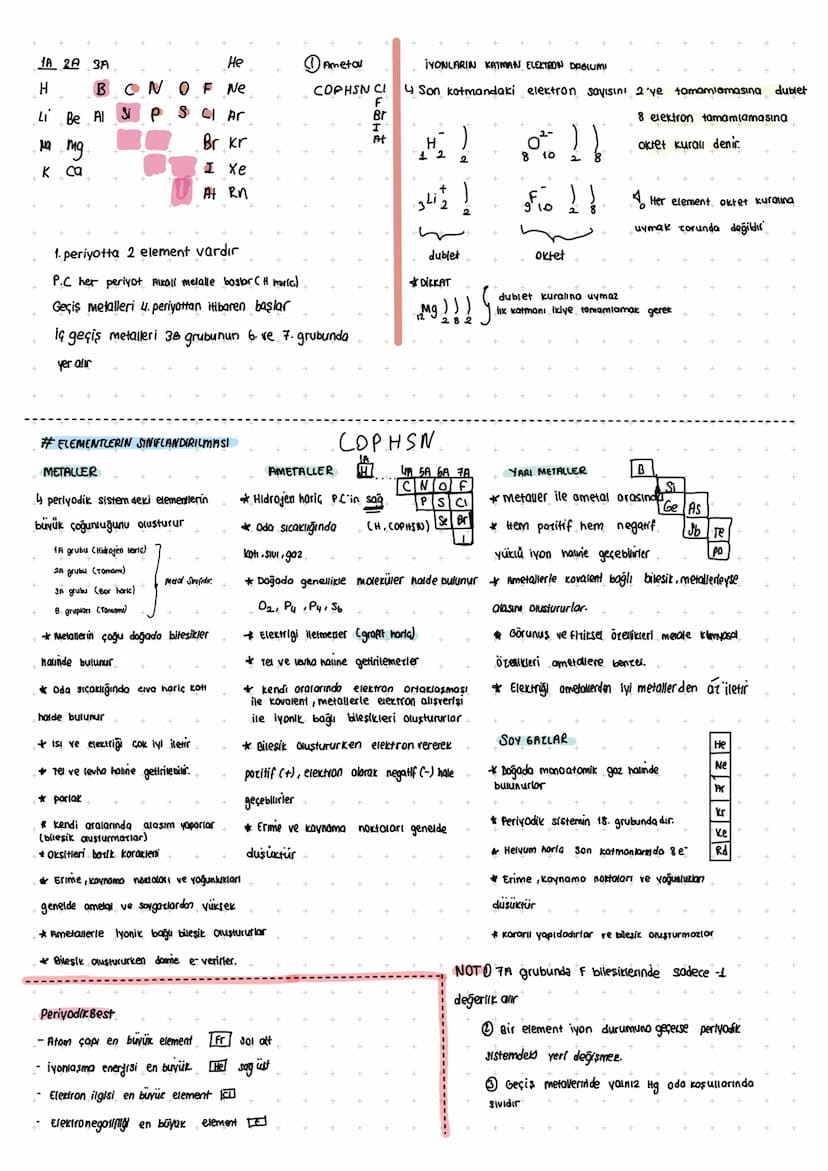 1A 2A 3A He
H B C N O F Ne
Li Be Al Si P S Cl Ar
Na Mg Br Kr
K Ca I Xe
At Rn
① Ametal
COPHSN Cl
F
Br
I
At
1. periyotta 2 element vardır
P.C her periyot Alkali metalle başlar (H hariç)
Geçiş metalleri 4. periyottan itibaren başlar
İç geçiş metalleri 3B grubunun 6. ve 7. grubunda
yer alır
İYONLARIN KATMAN ELEKTRON DAĞLIMI
↳ Son katmandaki elektron sayısını 2'ye tamamlamasına dublet
8 elektron tamamlamasına
oktet kuralı denir.
₁H⁻₂ ) 2
₈O²⁻₁₀ ) ) 2 8
₃Li⁺₂ ) 2
₉F⁻₁₀ ) ) 2 8
Her element oktet kuralına
uymak zorunda değildir
dublet
oktet
* DİKKAT
₁₂Mg ) ) ) 2 8 2
dublet kuralına uymaz
ilk katmanı ikiye tamamlamak gerek
# ELEMENTLERİN SINIFLANDIRILMASI
COPHSN
METALLER
↳ periyodik sistemdeki elementlerin
büyük çoğunluğunu oluşturur
1A grubu (Hidrojen hariç)
2A grubu (Tamamı)
3A grubu (Bor hariç)
B grupları (Tamamı)
metal sınıfıdır.
* Metallerin çoğu doğada bileşikler
halinde bulunur
* Oda sıcaklığında civa hariç katı
halde bulunur
* Isı ve elektriği çok iyi iletir
* Tel ve levha haline getirilebilir.
* parlak
* Kendi aralarında alaşım yaparlar
(bileşik oluşturmazlar)
* Oksitleri bazik karakterli
* Erime, kaynama noktaları ve yoğunlukları
genelde ametal ve soygazlardan yüksek
* Ametallerle iyonik bağlı bileşik oluştururlar
* Bileşik oluştururken daima e⁻ verirler.
AMETALLER
1A
H
4A 5A 6A 7A
C N O F
P S Cl
Se Br
I
* Hidrojen hariç P.C'in sağ
* Oda sıcaklığında (H, COPHSN)
katı, sıvı, gaz
* Doğada genellikle moleküler halde bulunur
O₂, P₄, P₄, S₆
* Elektriği iletmezler (grafit hariç)
* Tel ve levha haline getirilemezler
* kendi aralarında elektron ortaklaşması
ile kovalent, metallerle elektron alışverişi
ile iyonik bağlı bileşikleri oluştururlar
* Bileşik oluştururken elektron vererek
pozitif (+), elektron alarak negatif (-) hale
geçebilirler
* Erime ve kaynama noktaları genelde
düşüktür
YARI METALLER
B
Si
Ge As
Sb Te
Po
* Metaller ile ametal arasında
* Hem pozitif hem negatif
yüklü iyon haline geçebilirler
* Ametallerle kovalent bağlı bileşik, metallerleyse
alaşım oluştururlar.
* Görünuş ve fiziksel özellikleri metale kimyasal
özellikleri ametallere benzer.
* Elektriği ametallerden iyi metallerden az iletir
SOY GAZLAR
He
Ne
Ar
Kr
Xe
Rd
* Doğada monoatomik gaz halinde
bulunurlar
* Periyodik sistemin 18. grubundadır.
* Helyum hariç son katmanlarında 8e⁻
* Erime, kaynama noktaları ve yoğunlukları
düşüktür
* Kararlı yapıdadırlar ve bileşik oluşturmazlar
PeriyodikBest
- Atom çapı en büyük element Fr sol alt
- İyonlaşma enerjisi en büyük He sağ üst
- Elektron ilgisi en büyük element Cl
- Elektronegatifliği en büyük element F
NOT① 7A grubunda F bileşiklerinde sadece -1
değerlik alır
② Bir element iyon durumuna geçerse periyodik
sistemdeki yeri değişmez.
③ Geçiş metallerinde yalnız Hg oda koşullarında
sıvıdır